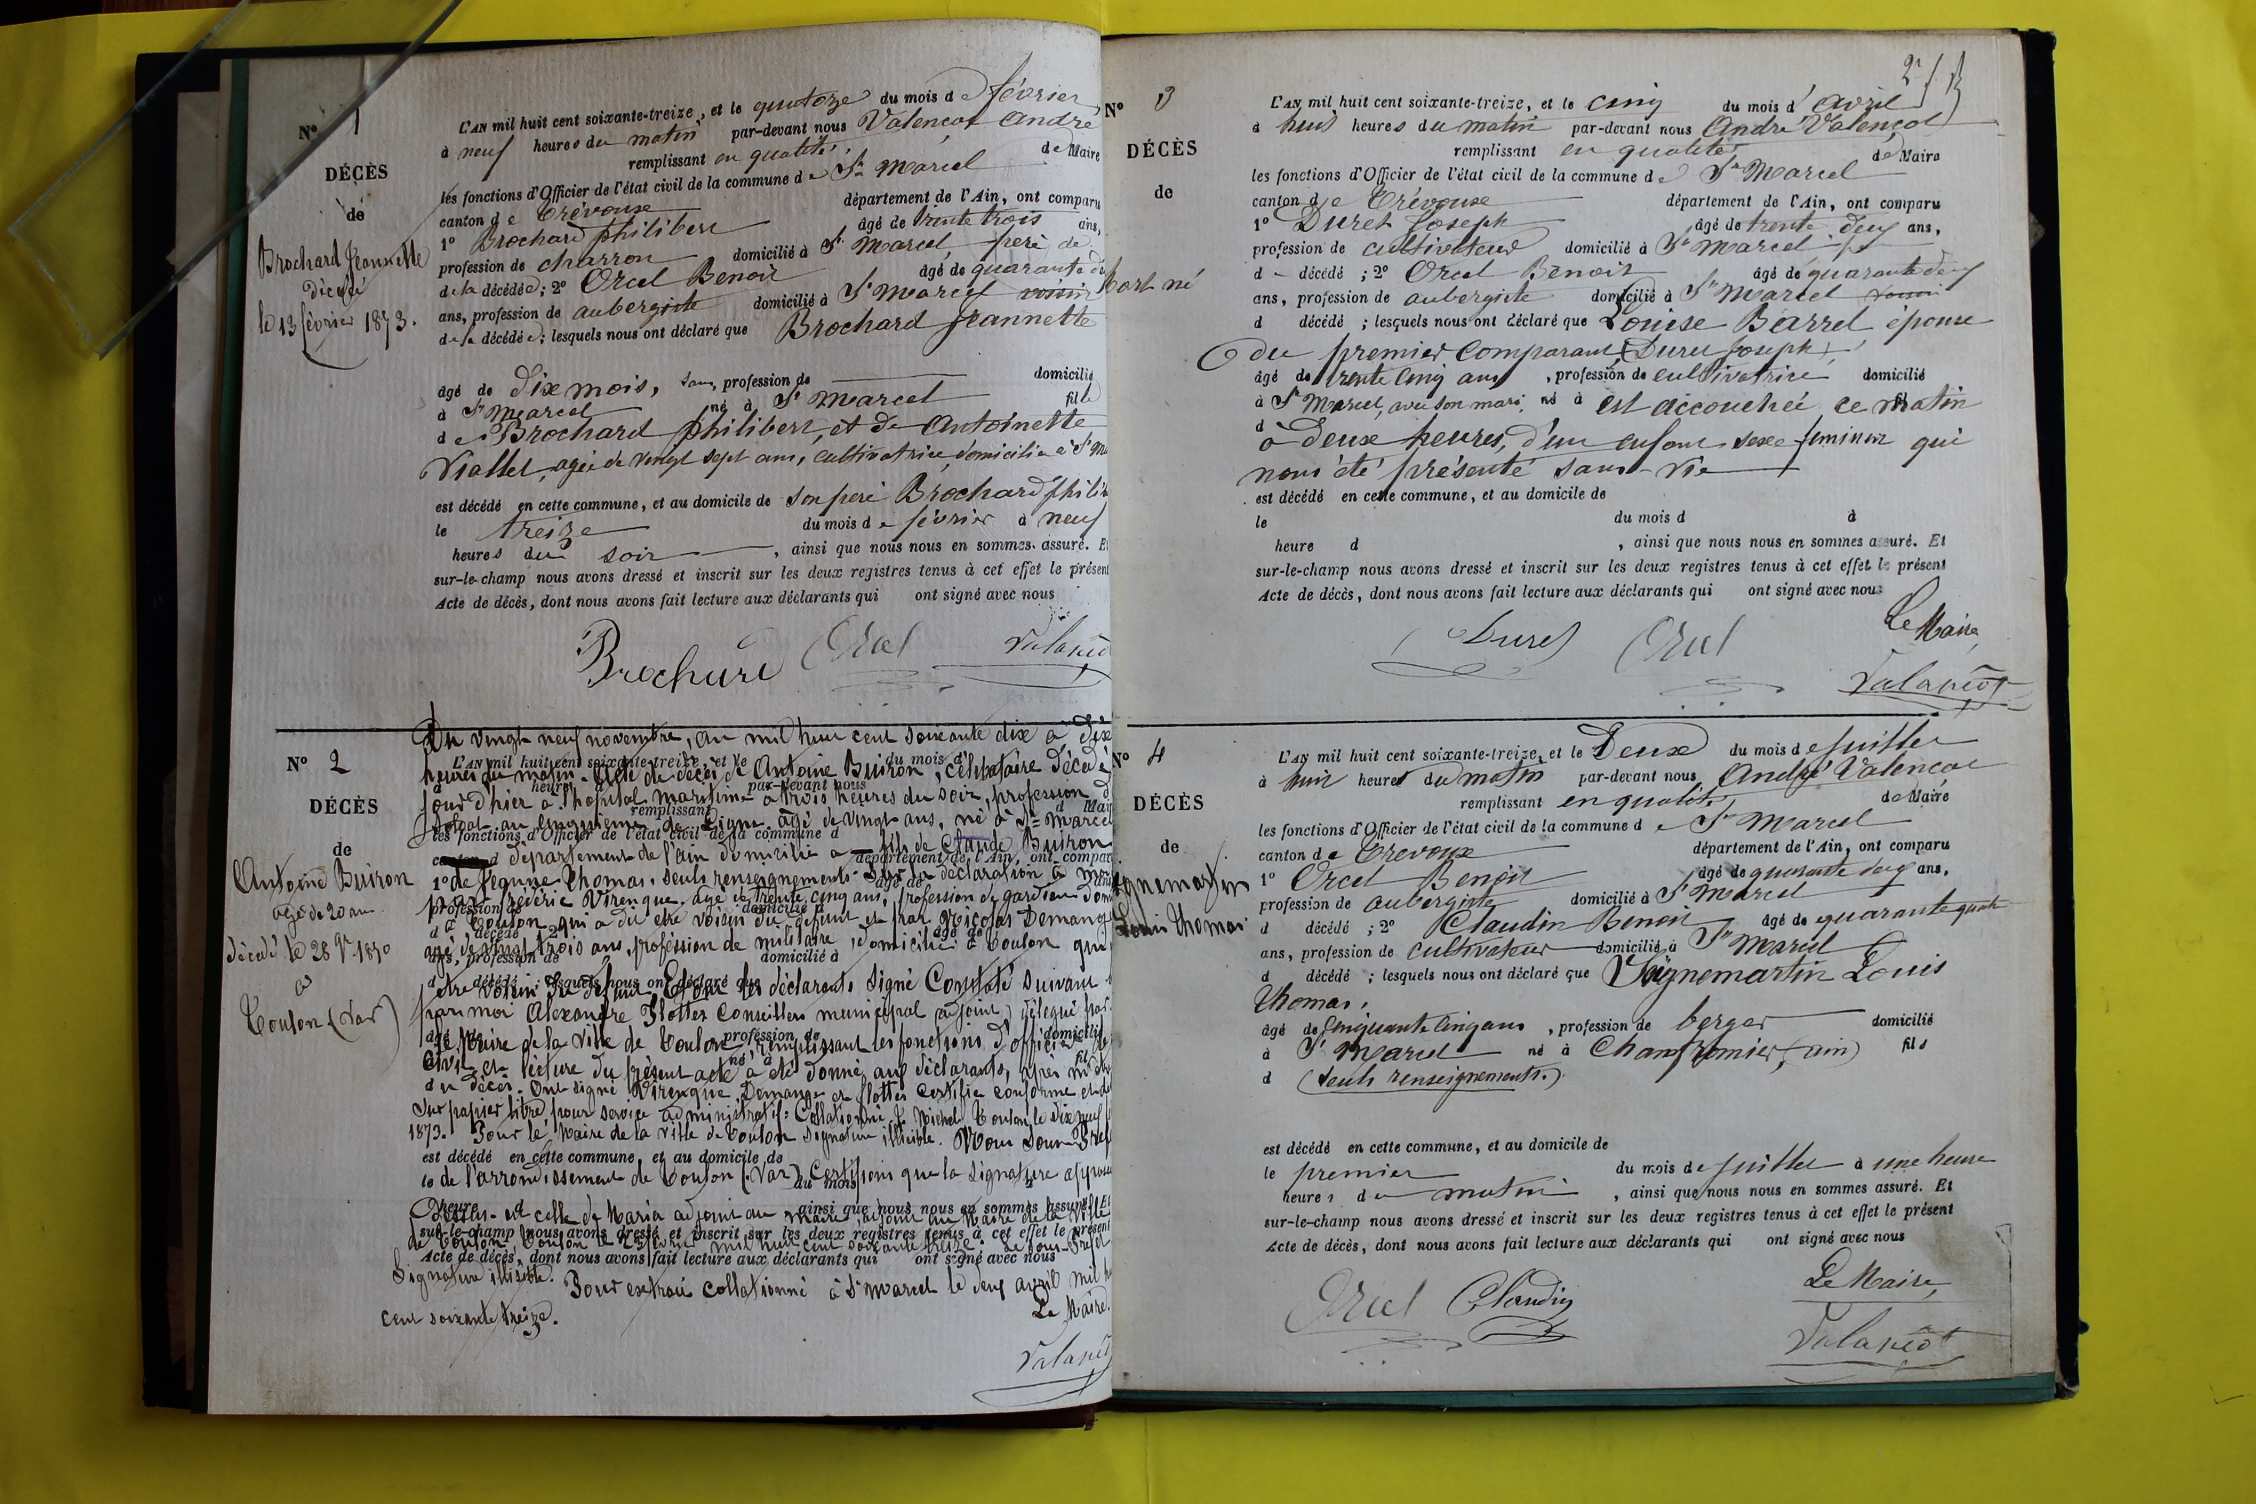 N° 1
DÉCÈS
de
Brochard Jeannette
décédé
le 13 février 1873.
L'AN mil huit cent soixante-treize, et le quatorze du mois de février
à neuf heures du matin par-devant nous Valencot André
remplissant en qualité de Maire
les fonctions d'Officier de l'état civil de la commune de St Marcel
canton de Trévoux département de l'Ain, ont comparu
1° Brochard philibert âgé de trente trois ans,
profession de charron domicilié à St Marcel père de
de la décédée; 2° Orcel Benoit âgé de quarante
ans, profession de aubergiste domicilié à St Marcel voisin
de la décédée; lesquels nous ont déclaré que Brochard Jeannette
âgé de dix mois, sans profession de domicilié
à St Marcel né à St Marcel fille
de Brochard philibert, et de Antoinette
Viallet, agée de vingt sept ans, cultivatrice, domiciliée à St
est décédé en cette commune, et au domicile de son père Brochard
le treize du mois de février à neuf
heures du soir, ainsi que nous nous en sommes assuré. Et
sur-le-champ nous avons dressé et inscrit sur les deux registres tenus à cet effet le présent
Acte de décès, dont nous avons fait lecture aux déclarants qui ont signé avec nous
Orcel
N° 2
DÉCÈS
de
Antoine Buiron
agé de 20 ans
décédé le 28 9re 1870
à
Toulon (Var)
Du vingt neuf novembre, an mil huit cent soixante dix à dix
heures du matin. Acte de décès de Antoine Buiron, célibataire décédé
jour d'hier à l'hopital maritime à trois heures du soir, profession
soldat au cinquième de Ligne agé de vingt ans, né à St Marcel
département de l'ain domicilié à fils de Claude Buiron
de Thomas. Seuls renseignements. Sur la déclaration à
par Fédéric Virenque, agé de trente cinq ans, profession de gardien
à Toulon qui a dit être voisin du défunt et par Nicolas Demange
agé de vingt trois ans, profession de militaire, domicilié à Toulon qui
être voisin du défunt. Et ont les déclarants signé Constaté suivant
par moi Alexandre Flottes Conseiller municipal adjoint délégué par
le Maire de la ville de Toulon remplissant les fonctions d'officier
Civil et lecture du présent acte a été donné aux déclarants,
ont signé Virenque, Demange et Flottes Certifié conforme
sur papier libre pour service administratif. Collationné Michel Toulon, le dix neuf
1873. Pour le Maire de la ville de Toulon Signature illisible. Nous Sous-Préfet
de l'arrondissement de Toulon (Var) Certifions que la signature
Dessus est celle de Maria adjoint au Maire de la ville
de Toulon. Toulon le mil huit cent soixante treize. Le Sous-Préfet
Signature illisible. Pour extrait collationné à St Marcel le deux avril mil
cent soixante treize.
Le Maire.
N° 3
DÉCÈS
de
mort né
L'AN mil huit cent soixante-treize, et le cinq du mois d'avril
à huit heures du matin par-devant nous André Valencot
remplissant en qualité de Maire
les fonctions d'Officier de l'état civil de la commune de St Marcel
canton de Trévoux département de l'Ain, ont comparu
1° Duret Joseph âgé de trente deux ans,
profession de cultivateur domicilié à St Marcel
d décédé; 2° Orcel Benoit âgé de quarante deux
ans, profession de aubergiste domicilié à St Marcel voisin
d décédé; lesquels nous ont déclaré que Louise Barrel, épouse
du premier Comparant (Duret Joseph),
âgé de trente cinq ans, profession de cultivatrice domicilié
à St Marcel, avec son mari, né à est accouchée ce matin
d à deux heures, d'un enfant sexe feminin qui
nous été présenté sans vie
est décédé en cette commune, et au domicile de
le du mois d à
heure d, ainsi que nous nous en sommes assuré. Et
sur-le-champ nous avons dressé et inscrit sur les deux registres tenus à cet effet le présent
Acte de décès, dont nous avons fait lecture aux déclarants qui ont signé avec nous
Le Maire,
Duret Orcel
Valancot
N° 4
DÉCÈS
de
Louis Thomas
L'AN mil huit cent soixante-treize, et le Deux du mois de juillet
à huit heures du matin par-devant nous André Valencot
remplissant en qualité de Maire
les fonctions d'Officier de l'état civil de la commune de St Marcel
canton de Trévoux département de l'Ain, ont comparu
1° Orcel Benoit âgé de quarante deux ans,
profession de aubergiste domicilié à St Marcel
d décédé; 2° Claudin Benoit âgé de quarante quatre
ans, profession de cultivateur domicilié à St Marcel
d décédé; lesquels nous ont déclaré que Vuignemartin Louis
Thomas,
âgé de cinquante cinq ans, profession de berger domicilié
à St Marcel né à Chanfromier, (ain) fils
d (seuls renseignements.)
est décédé en cette commune, et au domicile de
le premier du mois de juillet à une heure
heures du matin, ainsi que nous nous en sommes assuré. Et
sur-le-champ nous avons dressé et inscrit sur les deux registres tenus à cet effet le présent
Acte de décès, dont nous avons fait lecture aux déclarants qui ont signé avec nous
Le Maire,
Orcel Claudin
Valancot